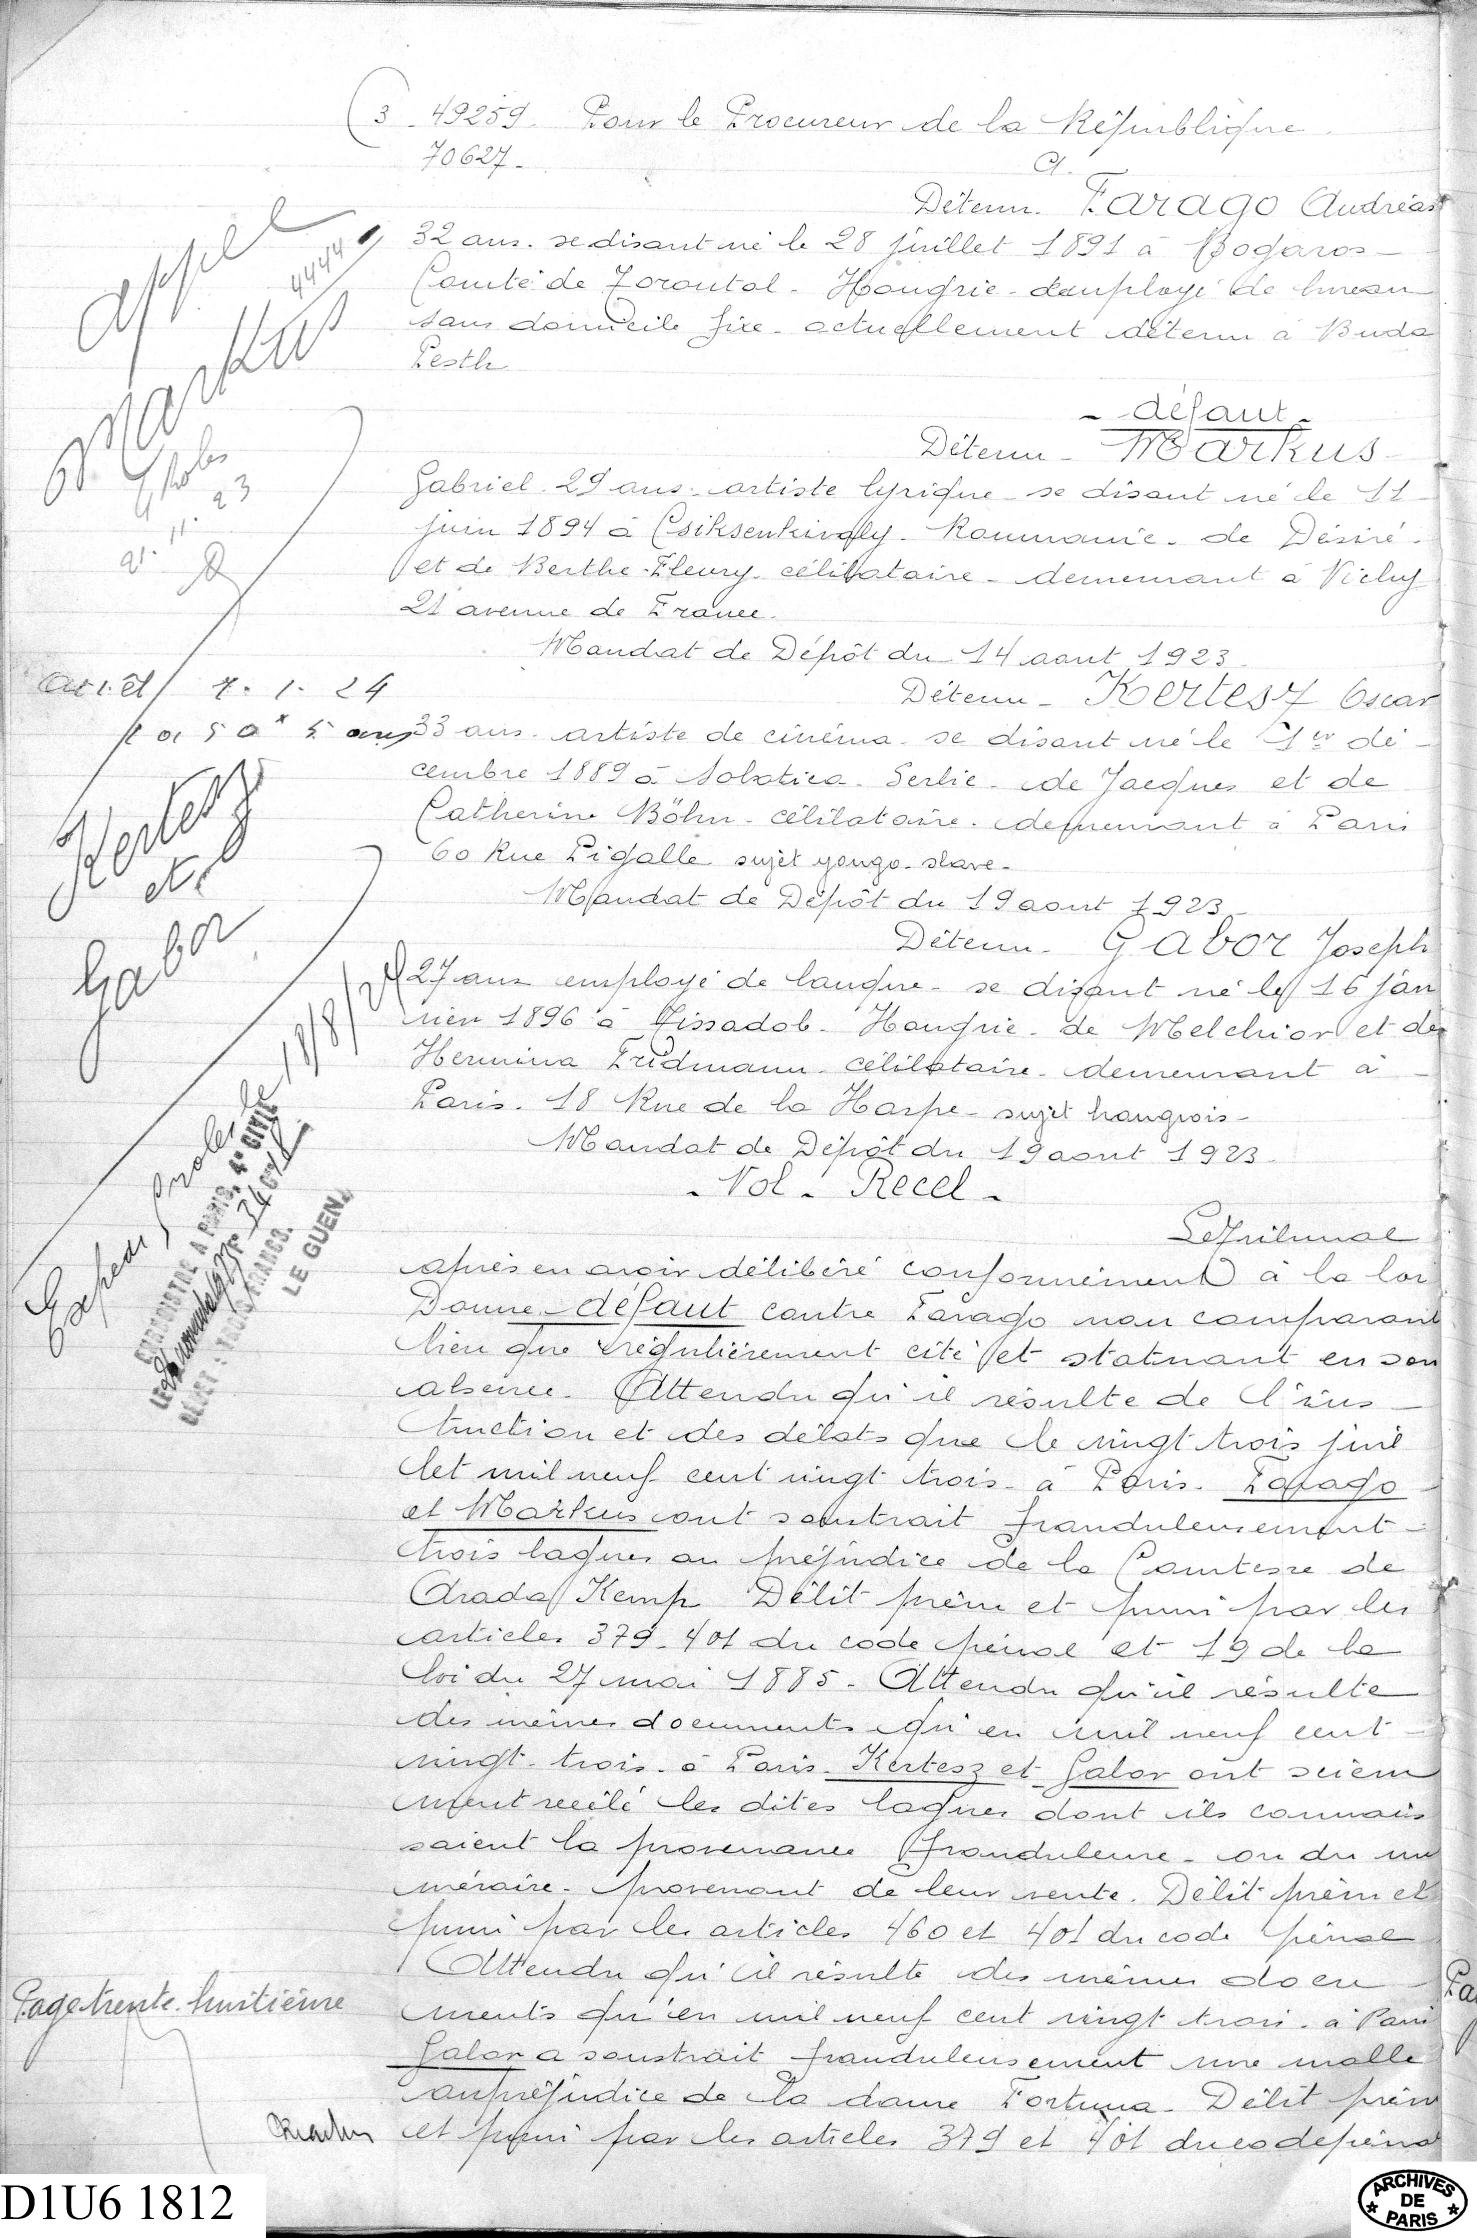 3 - 49259. Pour le Procureur de la République.
70627 -
a.
Détenu. Farago Andréas
32 ans. se disant né le 28 juillet 1891 à Bogaros -
Comté de Torontal. Hongrie. employé de bureau
sans domicile fixe. actuellement détenu à Buda
Pesth
- défaut -
Détenu - Markus
Gabriel. 29 ans. artiste lyrique - se disant né le 11
juin 1894 à Csiksenkiraly. Roumanie. de Désiré.
et de Berthe Fleury. célibataire - demeurant à Vichy
21 avenue de France.
Mandat de Dépôt du 14 aout 1923.
Détenu - Kertesz Oscar
33 ans. artiste de cinéma. se disant né le 1er dé -
cembre 1889 à Sobotica. Serbie. de Jacques et de
Catherine Böhm - célibataire. demeurant à Paris
60 Rue Pigalle sujet yougo-slave -
Mandat de Dépôt du 19 aout 1923 -
Détenu - Gabor Joseph
27 ans employé de banque - se disant né le 16 jan
vier 1896 à Tissadob. Hongrie. de Melchior et de
Hermina Fridmann. célibataire. demeurant à -
Paris. 18 Rue de la Harpe - sujet hongrois -
Mandat de Dépôt du 19 aout 1923.
- Vol - Recel -
Le Tribunal
après en avoir délibéré conformément à la loi
Donne - défaut contre Farago non comparant
bien que régulièrement cité et statuant en son
absence. Attendu qu'il résulte de l'ins -
truction et des débats que le vingt trois juil
let mil neuf cent vingt trois - à Paris. Farago -
et Markus ont soustrait frauduleusement -
trois bagues au préjudice de la Comtesse de
Arada Kemp Délit prévu et puni par les
articles 379. 401 du code pénal et 19 de la
loi du 27 mai 1885. Attendu qu'il résulte
des mêmes documents qu'en mil neuf cent -
vingt-trois. à Paris. Kertesz et Gabor ont sciem
ment recélé les dites bagues dont ils connais
saient la provenance frauduleuse. ou du nu
méraire - provenant de leur vente. Délit prévu et
puni par les articles 460 et 401 du code pénal
Attendu qu'il résulte des mêmes docu -
ments qu'en mil neuf cent vingt trois. à Paris
Gabor a soustrait frauduleusement une malle
au préjudice de la dame Fortuna. Délit prévu
et puni par les articles 379 et 401 du code pénal
Appel
4444
Markus
21. 11. 23
Arrêt 7. 1. 24
Kertesz
et
Gabor
Expédié le 18/8/24
ENREGISTRÉ A PARIS, 4e CIVIL
LE
DÉBET : TROIS FRANCS.
LE GUEN
Page trente-huitième
D1U6 1812
ARCHIVES
DE
PARIS